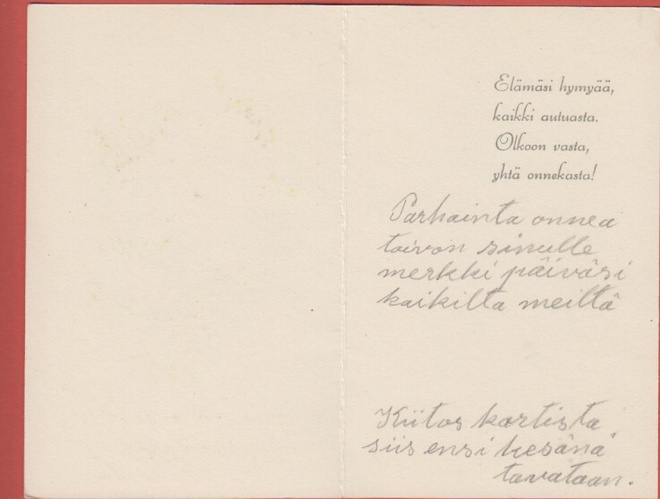 Elämäsi hymyää,
kaikki autuasta.
Olkoon vasta,
yhtä onnekasta!
Parhainta onnea
toivon sinulle
merkki päiväsi
kaikilta meiltä
Kiitos kortista
siis ensi kesänä
tavataan.